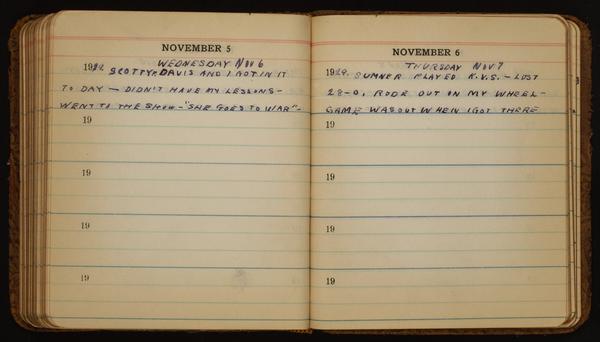 NOVEMBER 5
WEDNESDAY NOV 6
1929. SCOTTY, DAVIS AND I GOT IN IT
TO DAY — DIDN'T HAVE MY LESSONS -
WENT TO THE SHOW - "SHE GOES TO WAR" -
19
19
19
19
NOVEMBER 6
THURSDAY NOV 7
1929. SUMNER PLAYED K.V.S. - LOST
28-0, RODE OUT ON MY WHEEL -
GAME WAS OUT WHEN I GOT THERE
19
19
19
19